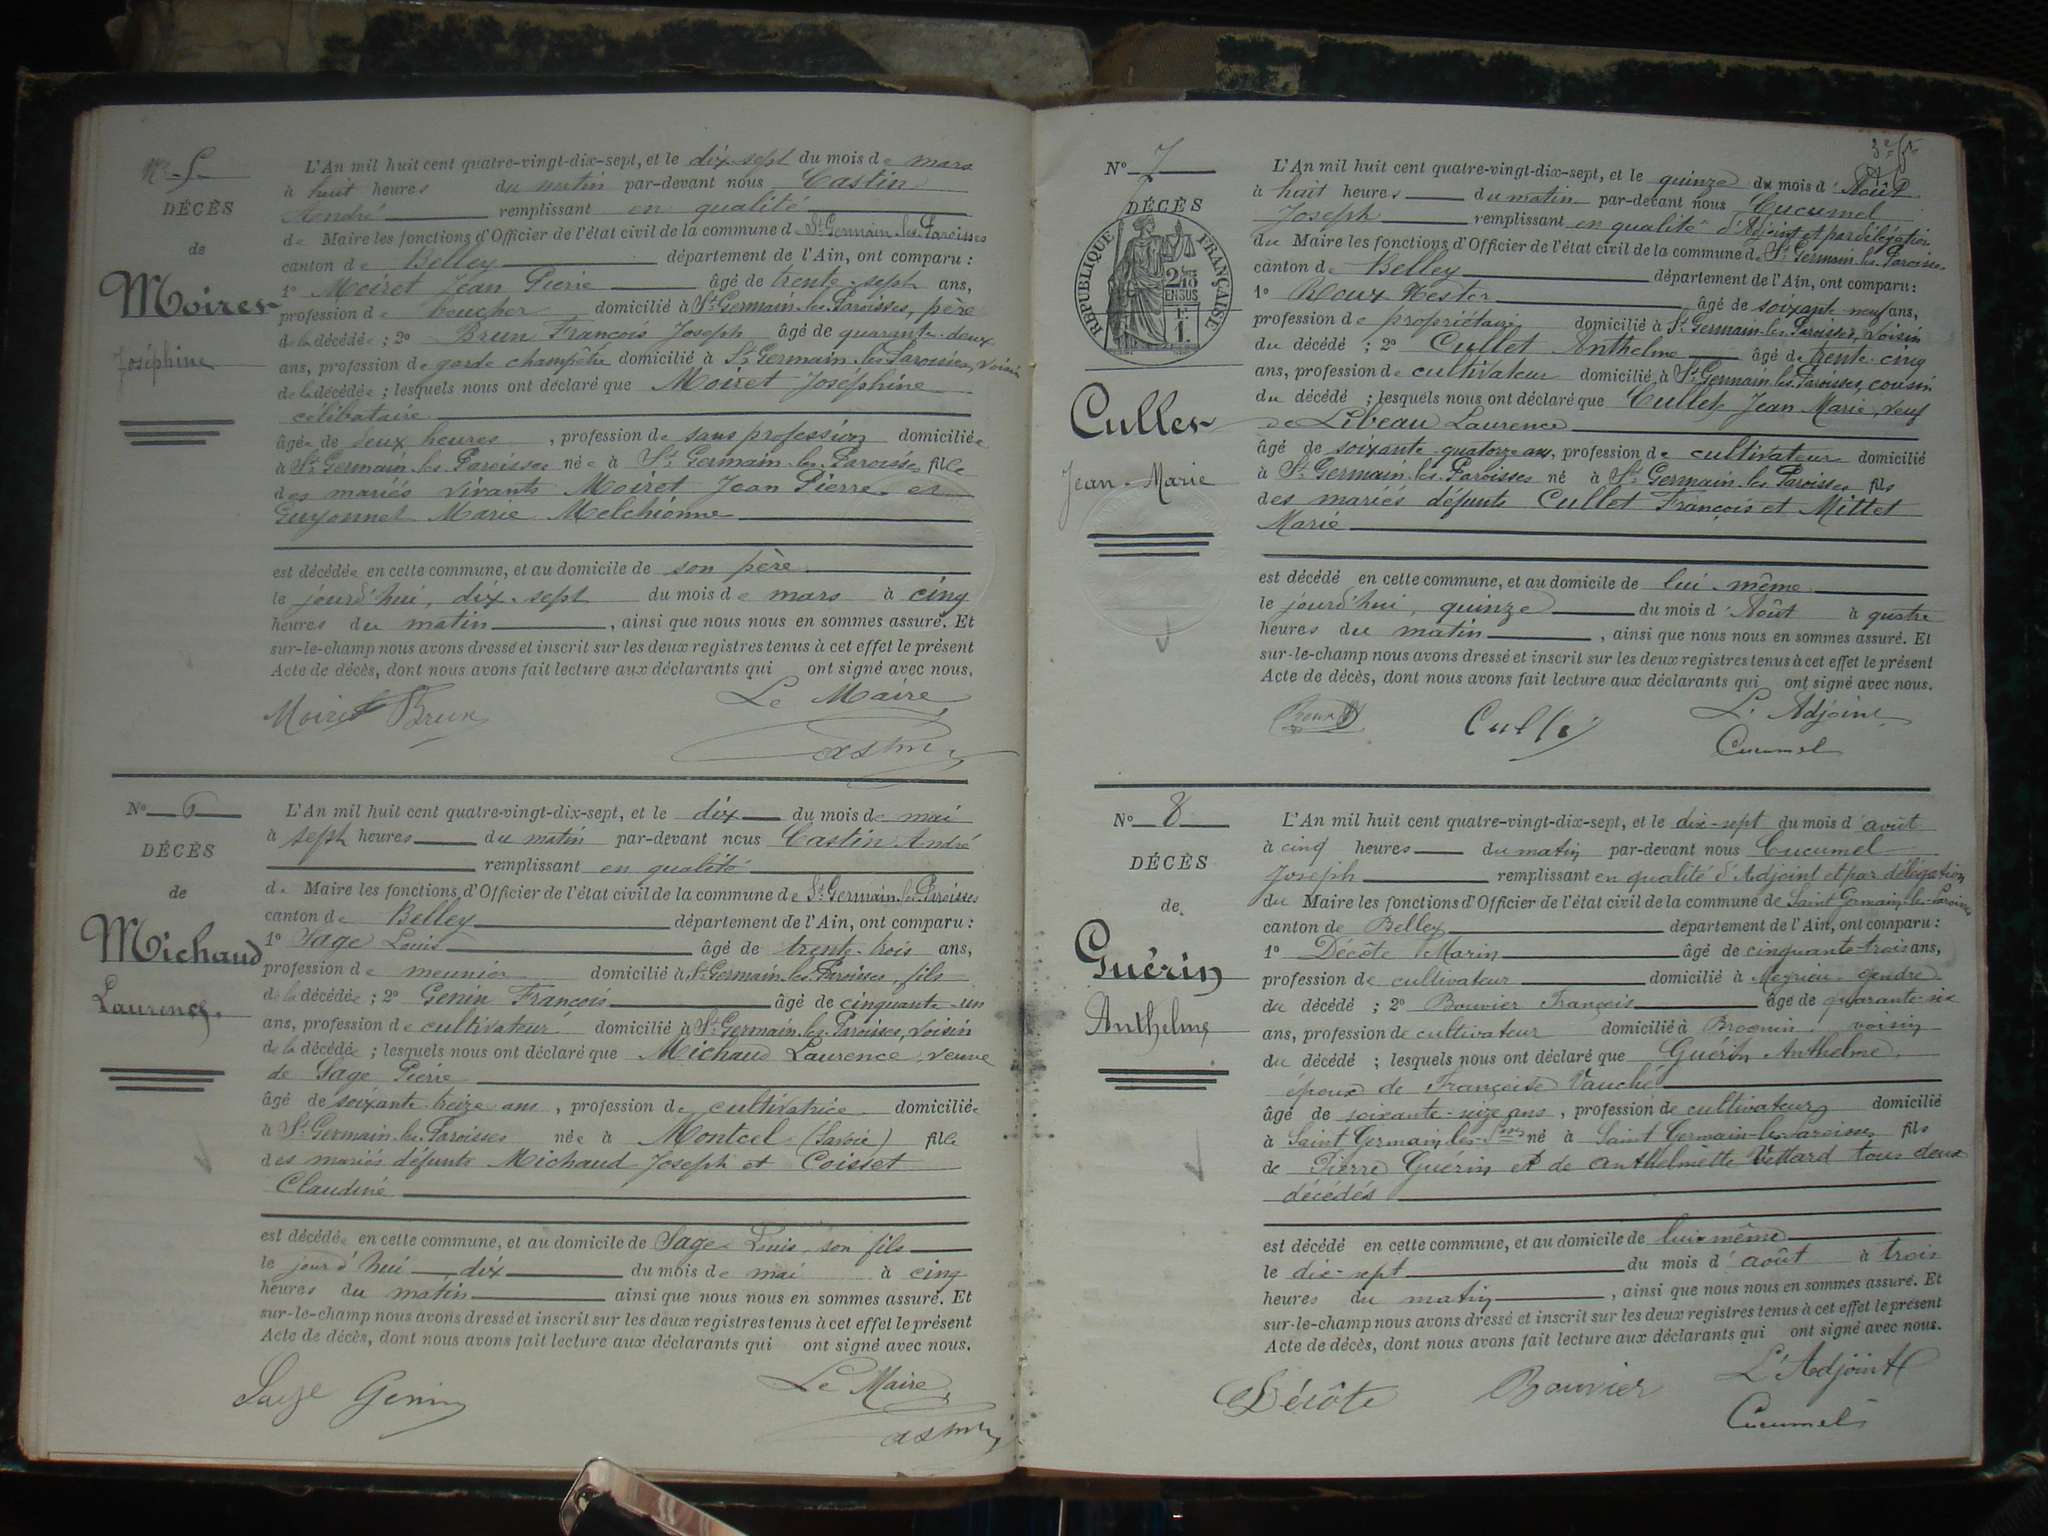 N° 5
DÉCÈS
de
Moiret
Joséphine
L'An mil huit cent quatre-vingt-dix-sept, et le dix sept du mois de mars
à huit heures du matin par-devant nous Castin
André remplissant en qualité
de Maire les fonctions d'Officier de l'état civil de la commune de St Germain-les-Paroisses
canton de Belley département de l'Ain, ont comparu :
1° Moiret Jean Pierre âgé de trente-sept ans,
profession de boucher domicilié à St Germain-les-Paroisses, père
de la décédée ; 2° Brun François Joseph âgé de quarante-deux
ans, profession de garde champêtre domicilié à St Germain-les-Paroisses, voisin
de la décédée ; lesquels nous ont déclaré que Moiret Joséphine
célibataire
âgée de deux heures , profession de sans profession domiciliée
à St Germain-les-Paroisses née à St Germain-les-Paroisses fille
des mariés vivants Moiret Jean Pierre et
Guyonnet Marie Melchionne
est décédée en cette commune, et au domicile de son père
le jourd'hui, dix-sept du mois de mars à cinq
heures du matin , ainsi que nous nous en sommes assuré. Et
sur-le-champ nous avons dressé et inscrit sur les deux registres tenus à cet effet le présent
Acte de décès, dont nous avons fait lecture aux déclarants qui ont signé avec nous.
Moiret Brun Le Maire
Castin
N° 6
DÉCÈS
de
Michaud
Laurence
L'An mil huit cent quatre-vingt-dix-sept, et le dix du mois de mai
à sept heures du matin par-devant nous Castin André
remplissant en qualité
de Maire les fonctions d'Officier de l'état civil de la commune de St Germain-les-Paroisses
canton de Belley département de l'Ain, ont comparu :
1° Sage Louis âgé de trente-trois ans,
profession de meunier domicilié à St Germain-les-Paroisses, fils
de la décédée ; 2° Genin François âgé de cinquante-un
ans, profession de cultivateur domicilié à St Germain-les-Paroisses, voisin
de la décédée ; lesquels nous ont déclaré que Michaud Laurence, veuve
de Sage Pierre
âgé de soixante-treize ans , profession de cultivatrice domiciliée
à St Germain-les-Paroisses née à Montcel (Savoie) fille
des mariés défunts Michaud Joseph et Coisset
Claudine
est décédée en cette commune, et au domicile de Sage Louis, son fils
le jourd'hui dix du mois de mai à cinq
heures du matin ainsi que nous nous en sommes assuré. Et
sur-le-champ nous avons dressé et inscrit sur les deux registres tenus à cet effet le présent
Acte de décès, dont nous avons fait lecture aux déclarants qui ont signé avec nous.
Sage Genin Le Maire
Castin
N° 7
DÉCÈS
RÉPUBLIQUE FRANÇAISE
2/10
EN SUS
Cullet
Jean-Marie
L'An mil huit cent quatre-vingt-dix-sept, et le quinze du mois d'Août
à huit heures du matin par-devant nous Cucumel
Joseph remplissant en qualité d'Adjoint et par délégation
du Maire les fonctions d'Officier de l'état civil de la commune de St Germain-les-Paroisses
canton de Belley département de l'Ain, ont comparu :
1° Roux Nestor âgé de soixante-neuf ans,
profession de propriétaire domicilié à St Germain-les-Paroisses, voisin
du décédé ; 2° Cullet Anthelme âgé de trente-cinq
ans, profession de cultivateur domicilié à St Germain-les-Paroisses, cousin
du décédé ; lesquels nous ont déclaré que Cullet Jean Marie, veuf
de Libeau Laurence
âgé de soixante-quatorze ans, profession de cultivateur domicilié
à St Germain-les-Paroisses né à St Germain-les-Paroisses fils
des mariés défunts Cullet François et Mittet
Marie
est décédé en cette commune, et au domicile de lui-même
le jourd'hui, quinze du mois d'Août à quatre
heures du matin , ainsi que nous nous en sommes assuré. Et
sur-le-champ nous avons dressé et inscrit sur les deux registres tenus à cet effet le présent
Acte de décès, dont nous avons fait lecture aux déclarants qui ont signé avec nous.
L'Adjoint
Cucumel
N° 8
DÉCÈS
de
Guérin
Anthelme
L'An mil huit cent quatre-vingt-dix-sept, et le dix-sept du mois d'août
à cinq heures du matin par-devant nous Cucumel
Joseph remplissant en qualité d'Adjoint et par délégation
du Maire les fonctions d'Officier de l'état civil de la commune de Saint Germain-les-Paroisses
canton de Belley département de l'Ain, ont comparu :
1° Décôte Marin âgé de cinquante-trois ans,
profession de cultivateur domicilié à Meyrieu gendre
du décédé ; 2° Bouvier François âgé de quarante-six
ans, profession de cultivateur domicilié à Brognin, voisin
du décédé ; lesquels nous ont déclaré que Guérin Anthelme
époux de Françoise Vauché
âgé de soixante-seize ans , profession de cultivateur domicilié
à Saint Germain-les-Pses né à Saint Germain-les-Paroisses fils
de Pierre Guérin et de Anthelmette Vettard tous deux
décédés
est décédé en cette commune, et au domicile de lui-même
le dix-sept du mois d'août à trois
heures du matin , ainsi que nous nous en sommes assuré. Et
sur-le-champ nous avons dressé et inscrit sur les deux registres tenus à cet effet le présent
Acte de décès, dont nous avons fait lecture aux déclarants qui ont signé avec nous.
Décôte Bouvier L'Adjoint
Cucumel